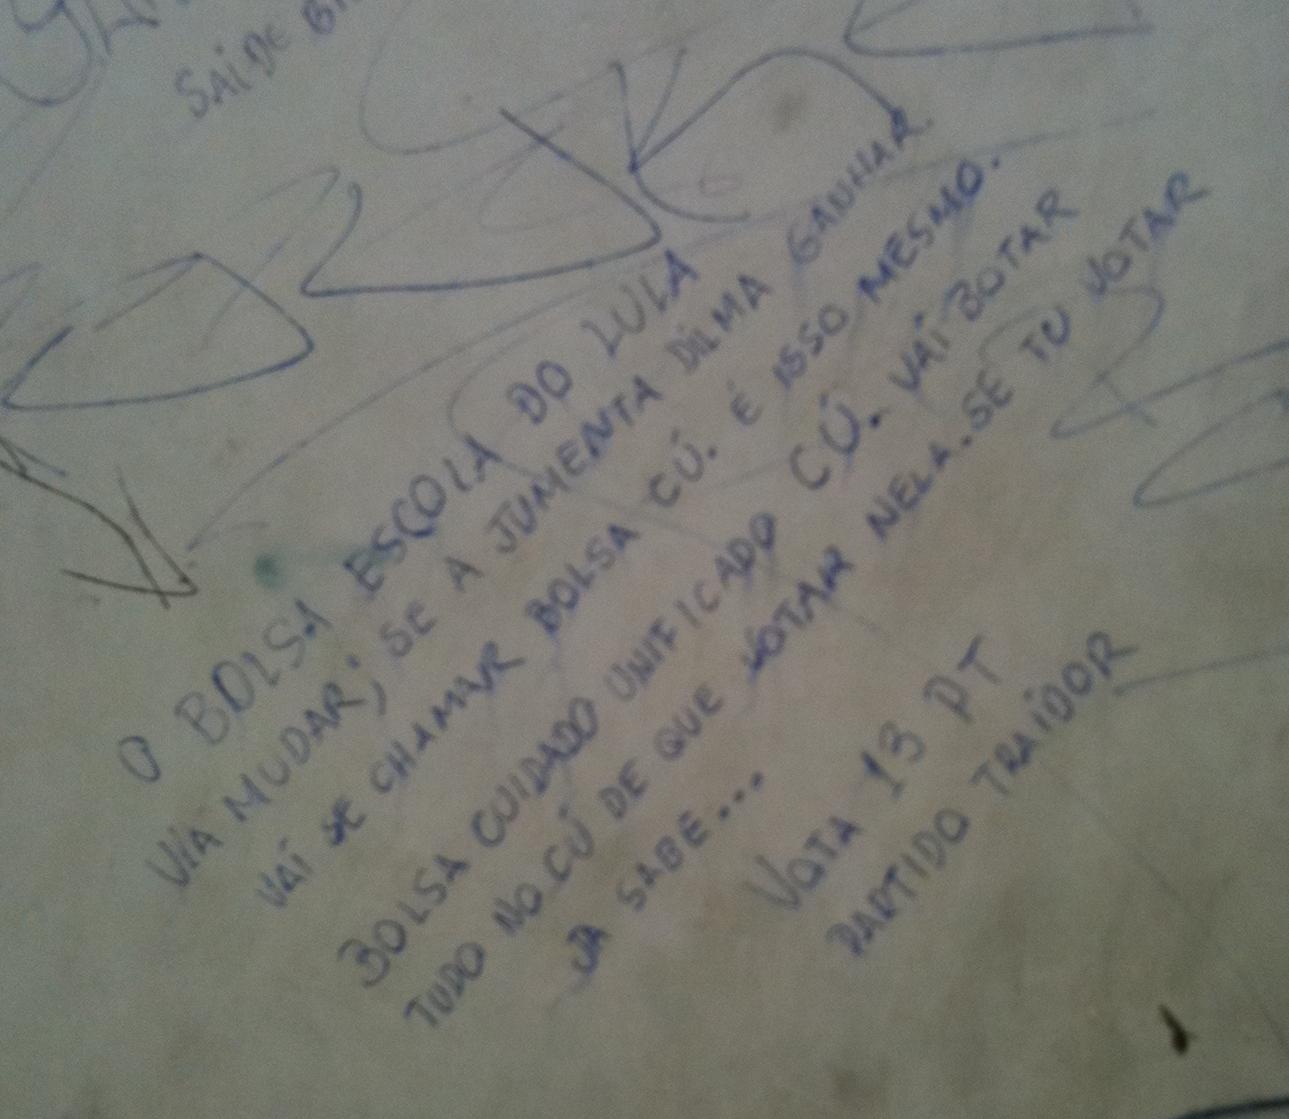 SAÍ DE
O BOLSA ESCOLA DO LULA
VIA MUDAR; SE A JUMENTA DILMA GANHAR.
VAÍ SE CHAMAR BOLSA CÚ. É ISSO MESMO.
BOLSA CUIDADO UNIFICADO CÚ. VAÍ BOTAR
TUDO NO CÚ DE QUE VOTAR NELA. SE TU VOTAR
JÁ SABE...
VOTA 13 PT
PARTIDO TRAÍDOR